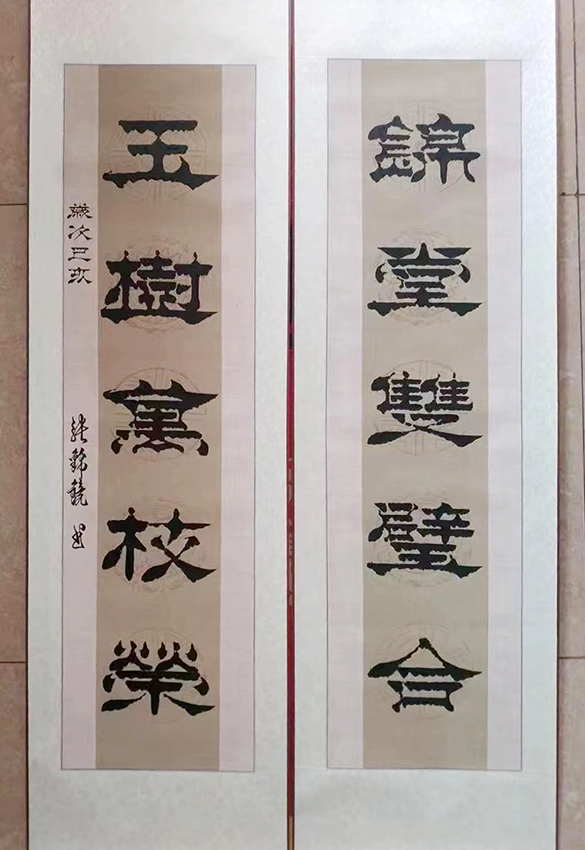 錦堂雙璧合
玉樹萬枝榮
歲次己亥
張錦鏡書